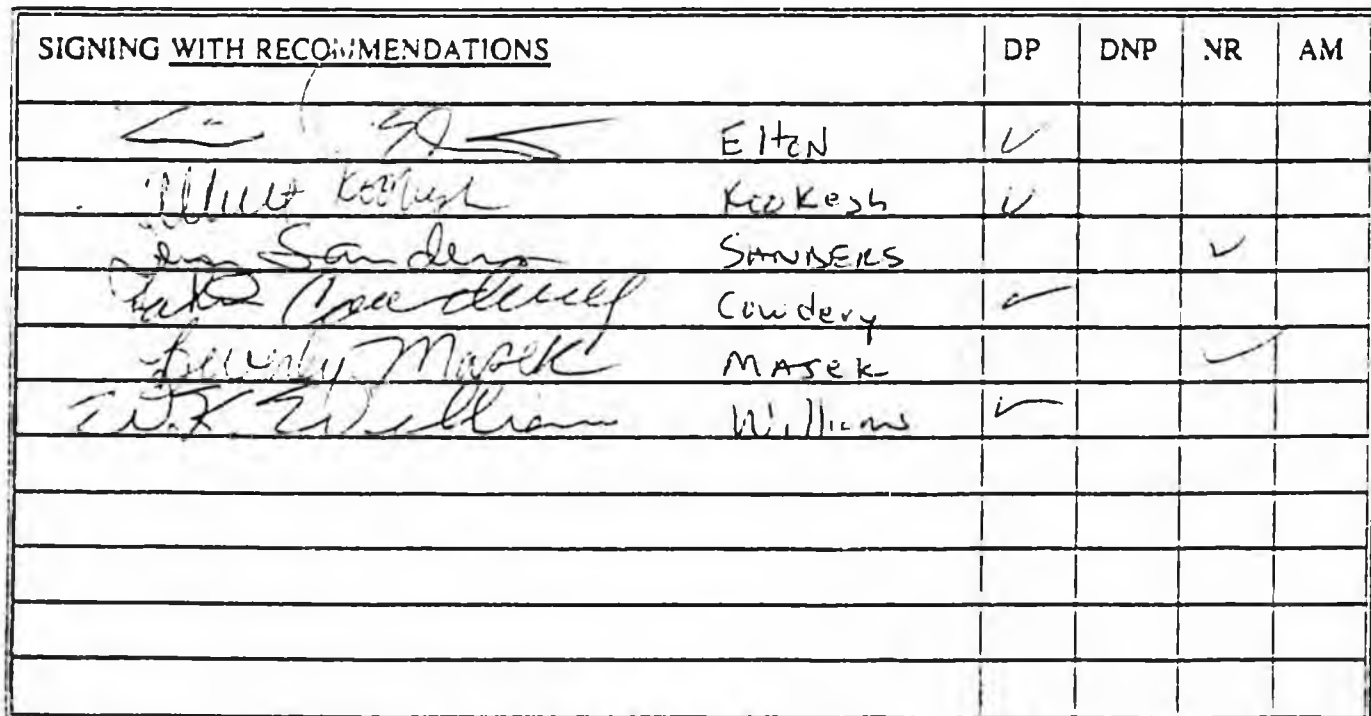 SIGNING WITH RECOMMENDATIONS DP DNP NR AM
Elton ✓
Albert Kookesh Kookesh ✓
Jerry Sanders SANDERS ✓
Cowdery ✓
Beverly Masek MASek ✓
W.K. Williams Williams ✓